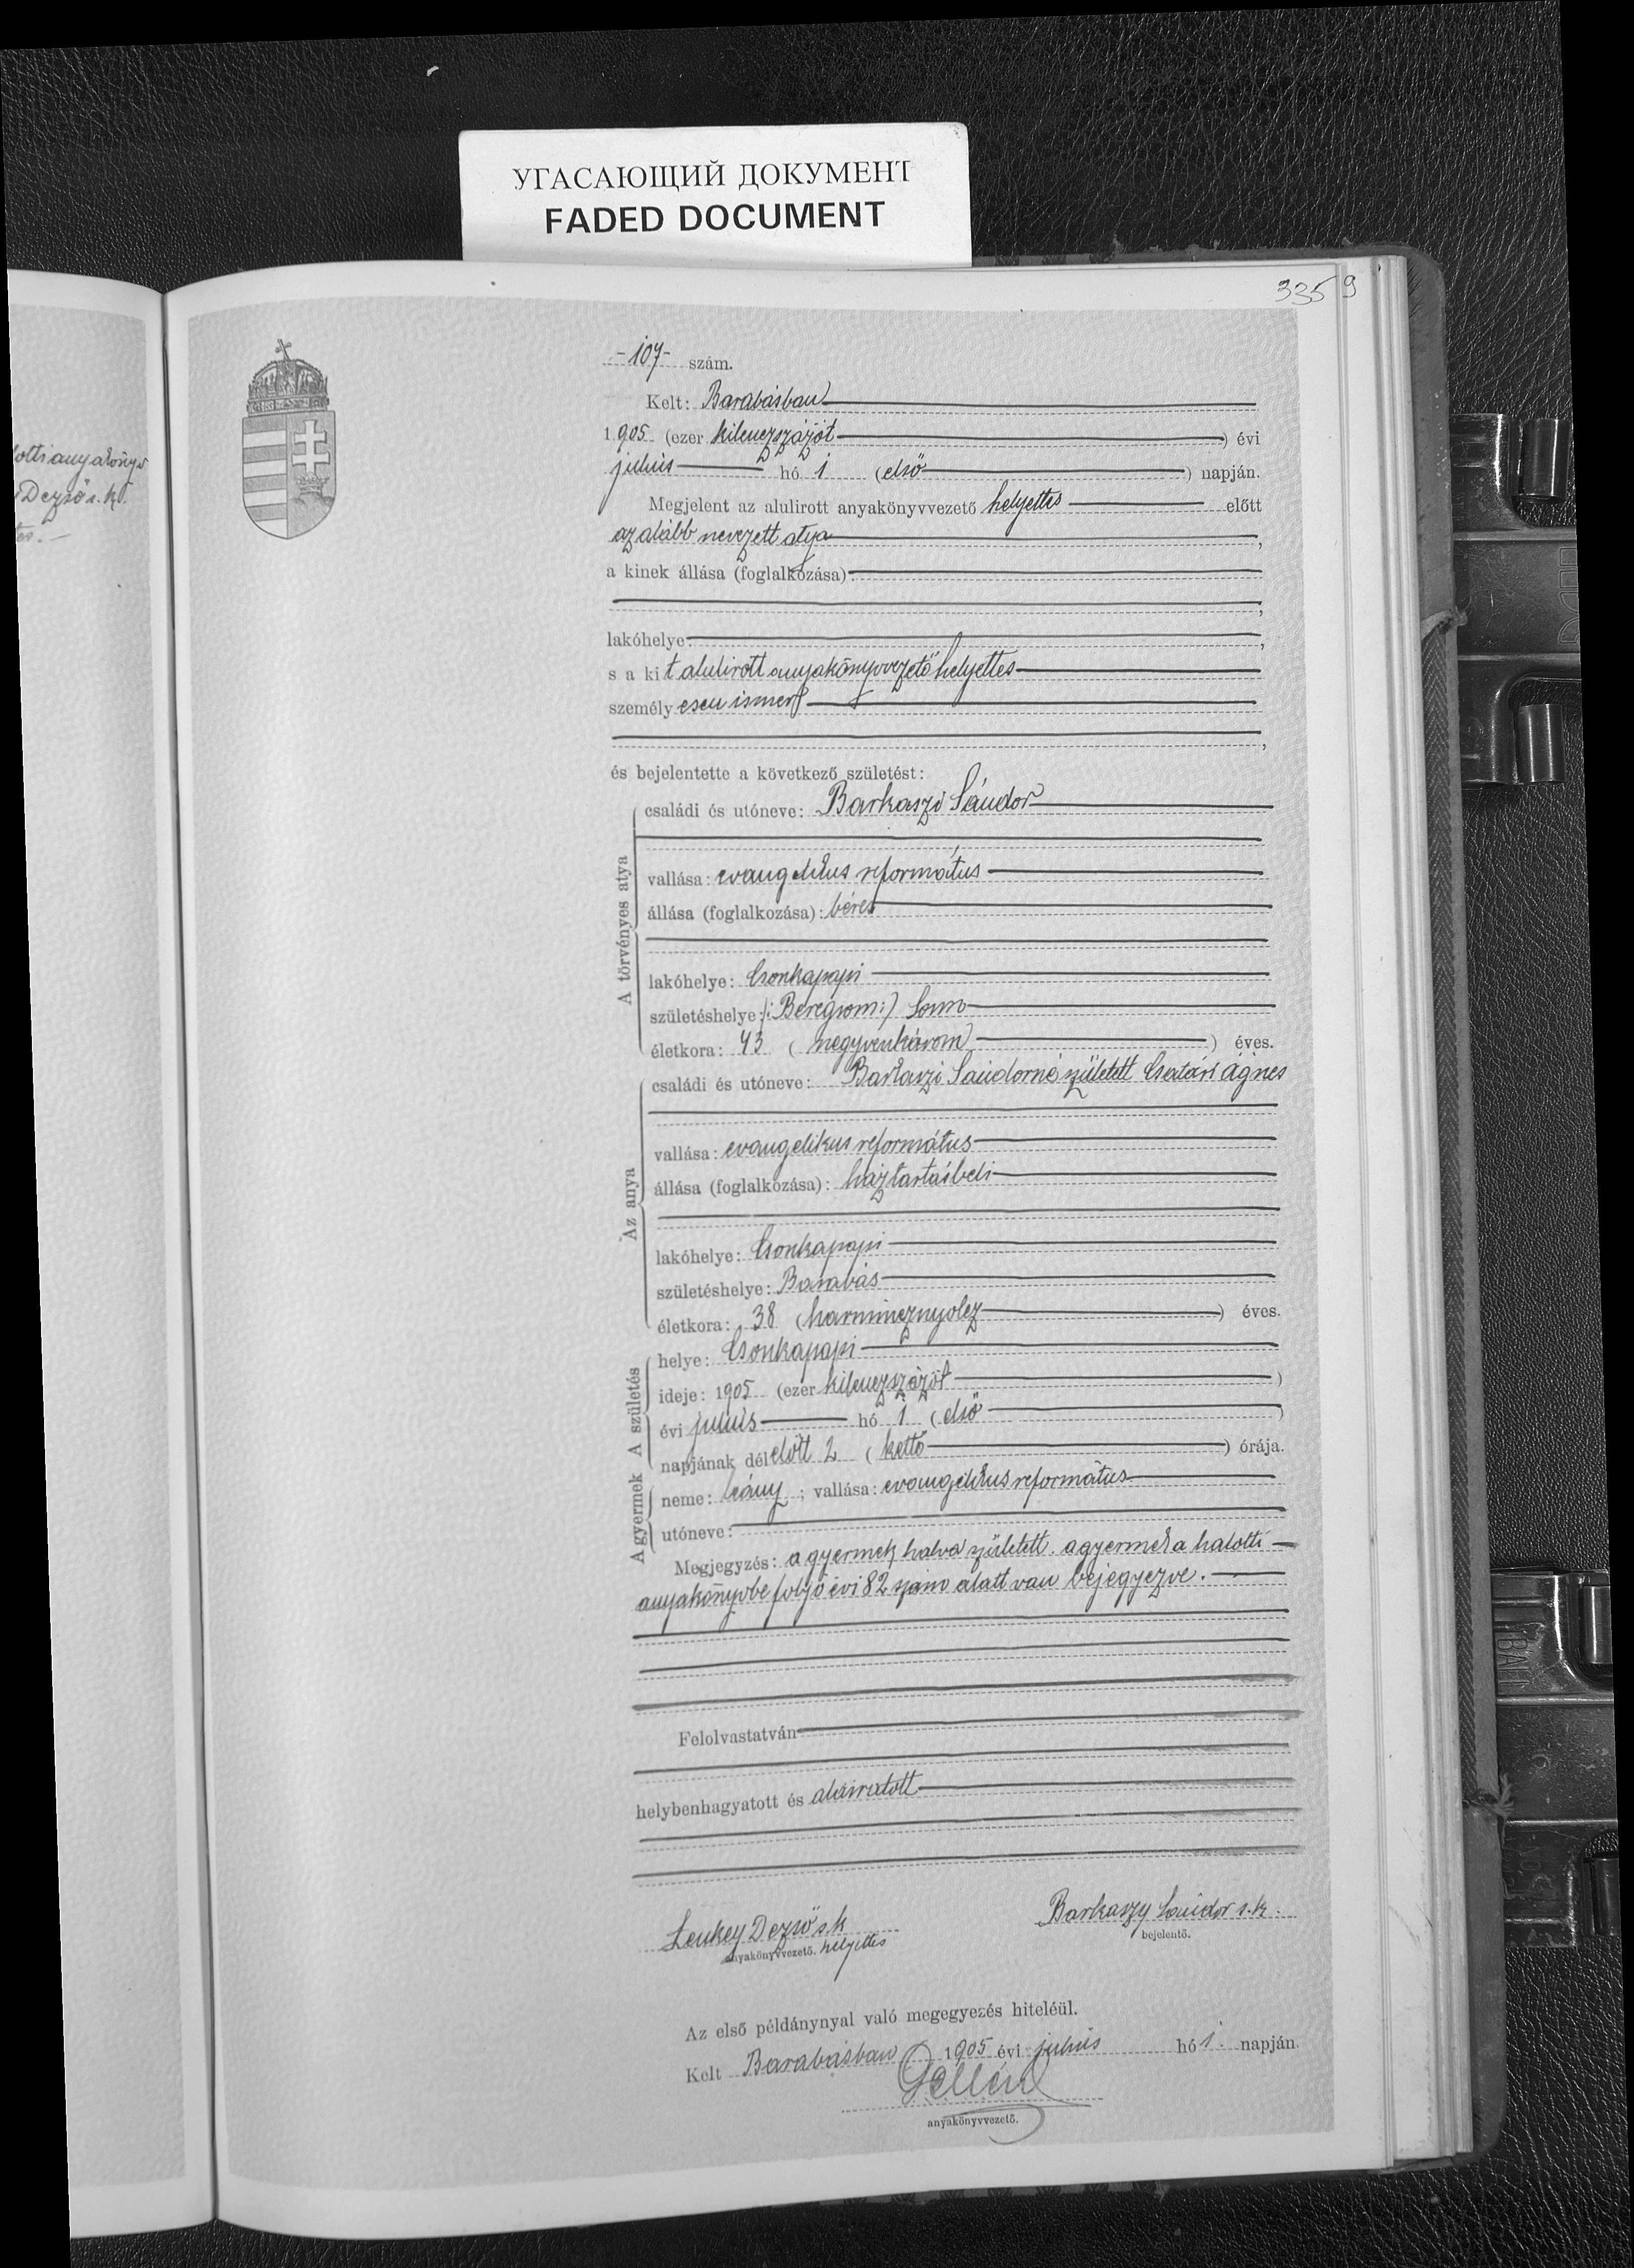 УГАСАЮЩИЙ ДОКУМЕНТ
FADED DOCUMENT
335 9
otti anyakönyv
Dezső s.k.
-107- szám.
Kelt: Barabásban
1905 (ezer kilenczszázöt) évi
julius hó 1 (első) napján.
Megjelent az alulirott anyakönyvvezető helyettes előtt
az alább nevezett atya,
a kinek állása (foglalkozása):
,
lakóhelye:,
s a kit alulirott anyakönyvvezető helyettes
személyesen ismer
,
és bejelentette a következő születést:
A törvényes atya
családi és utóneve: Barkaszi Sándor
vallása: evangelikus református
állása (foglalkozása): béres
lakóhelye: Csonkapapi
születéshelye: /: Beregsom :/ Som
életkora: 43 (negyvenhárom) éves.
Az anya
családi és utóneve: Barkaszi Sándorné született Csatári Ágnes
vallása: evangelikus református
állása (foglalkozása): háztartásbeli
lakóhelye: Csonkapapi
születéshelye: Barabás
életkora: 38 (harmincznyolcz) éves.
A születés
helye: Csonkapapi
ideje: 1905 (ezer kilenczszázöt)
évi julius hó 1 (első)
napjának délelőtt 2 (kettő) órája.
A gyermek
neme: leány; vallása: evangelikus református
utóneve:
Megjegyzés: a gyermek halva született. a gyermek a halotti
anyakönyvbe folyó évi 82 szám alatt van bejegyezve.
Felolvastatván
helybenhagyatott és aláiratott
Lenkey Dezső s.k. Barkaszy Sándor s.k.
anyakönyvvezető. helyettes bejelentő.
Az első példánynyal való megegyezés hiteléül.
Kelt Barabásban 1905 évi julius hó 1 napján.
anyakönyvvezető.